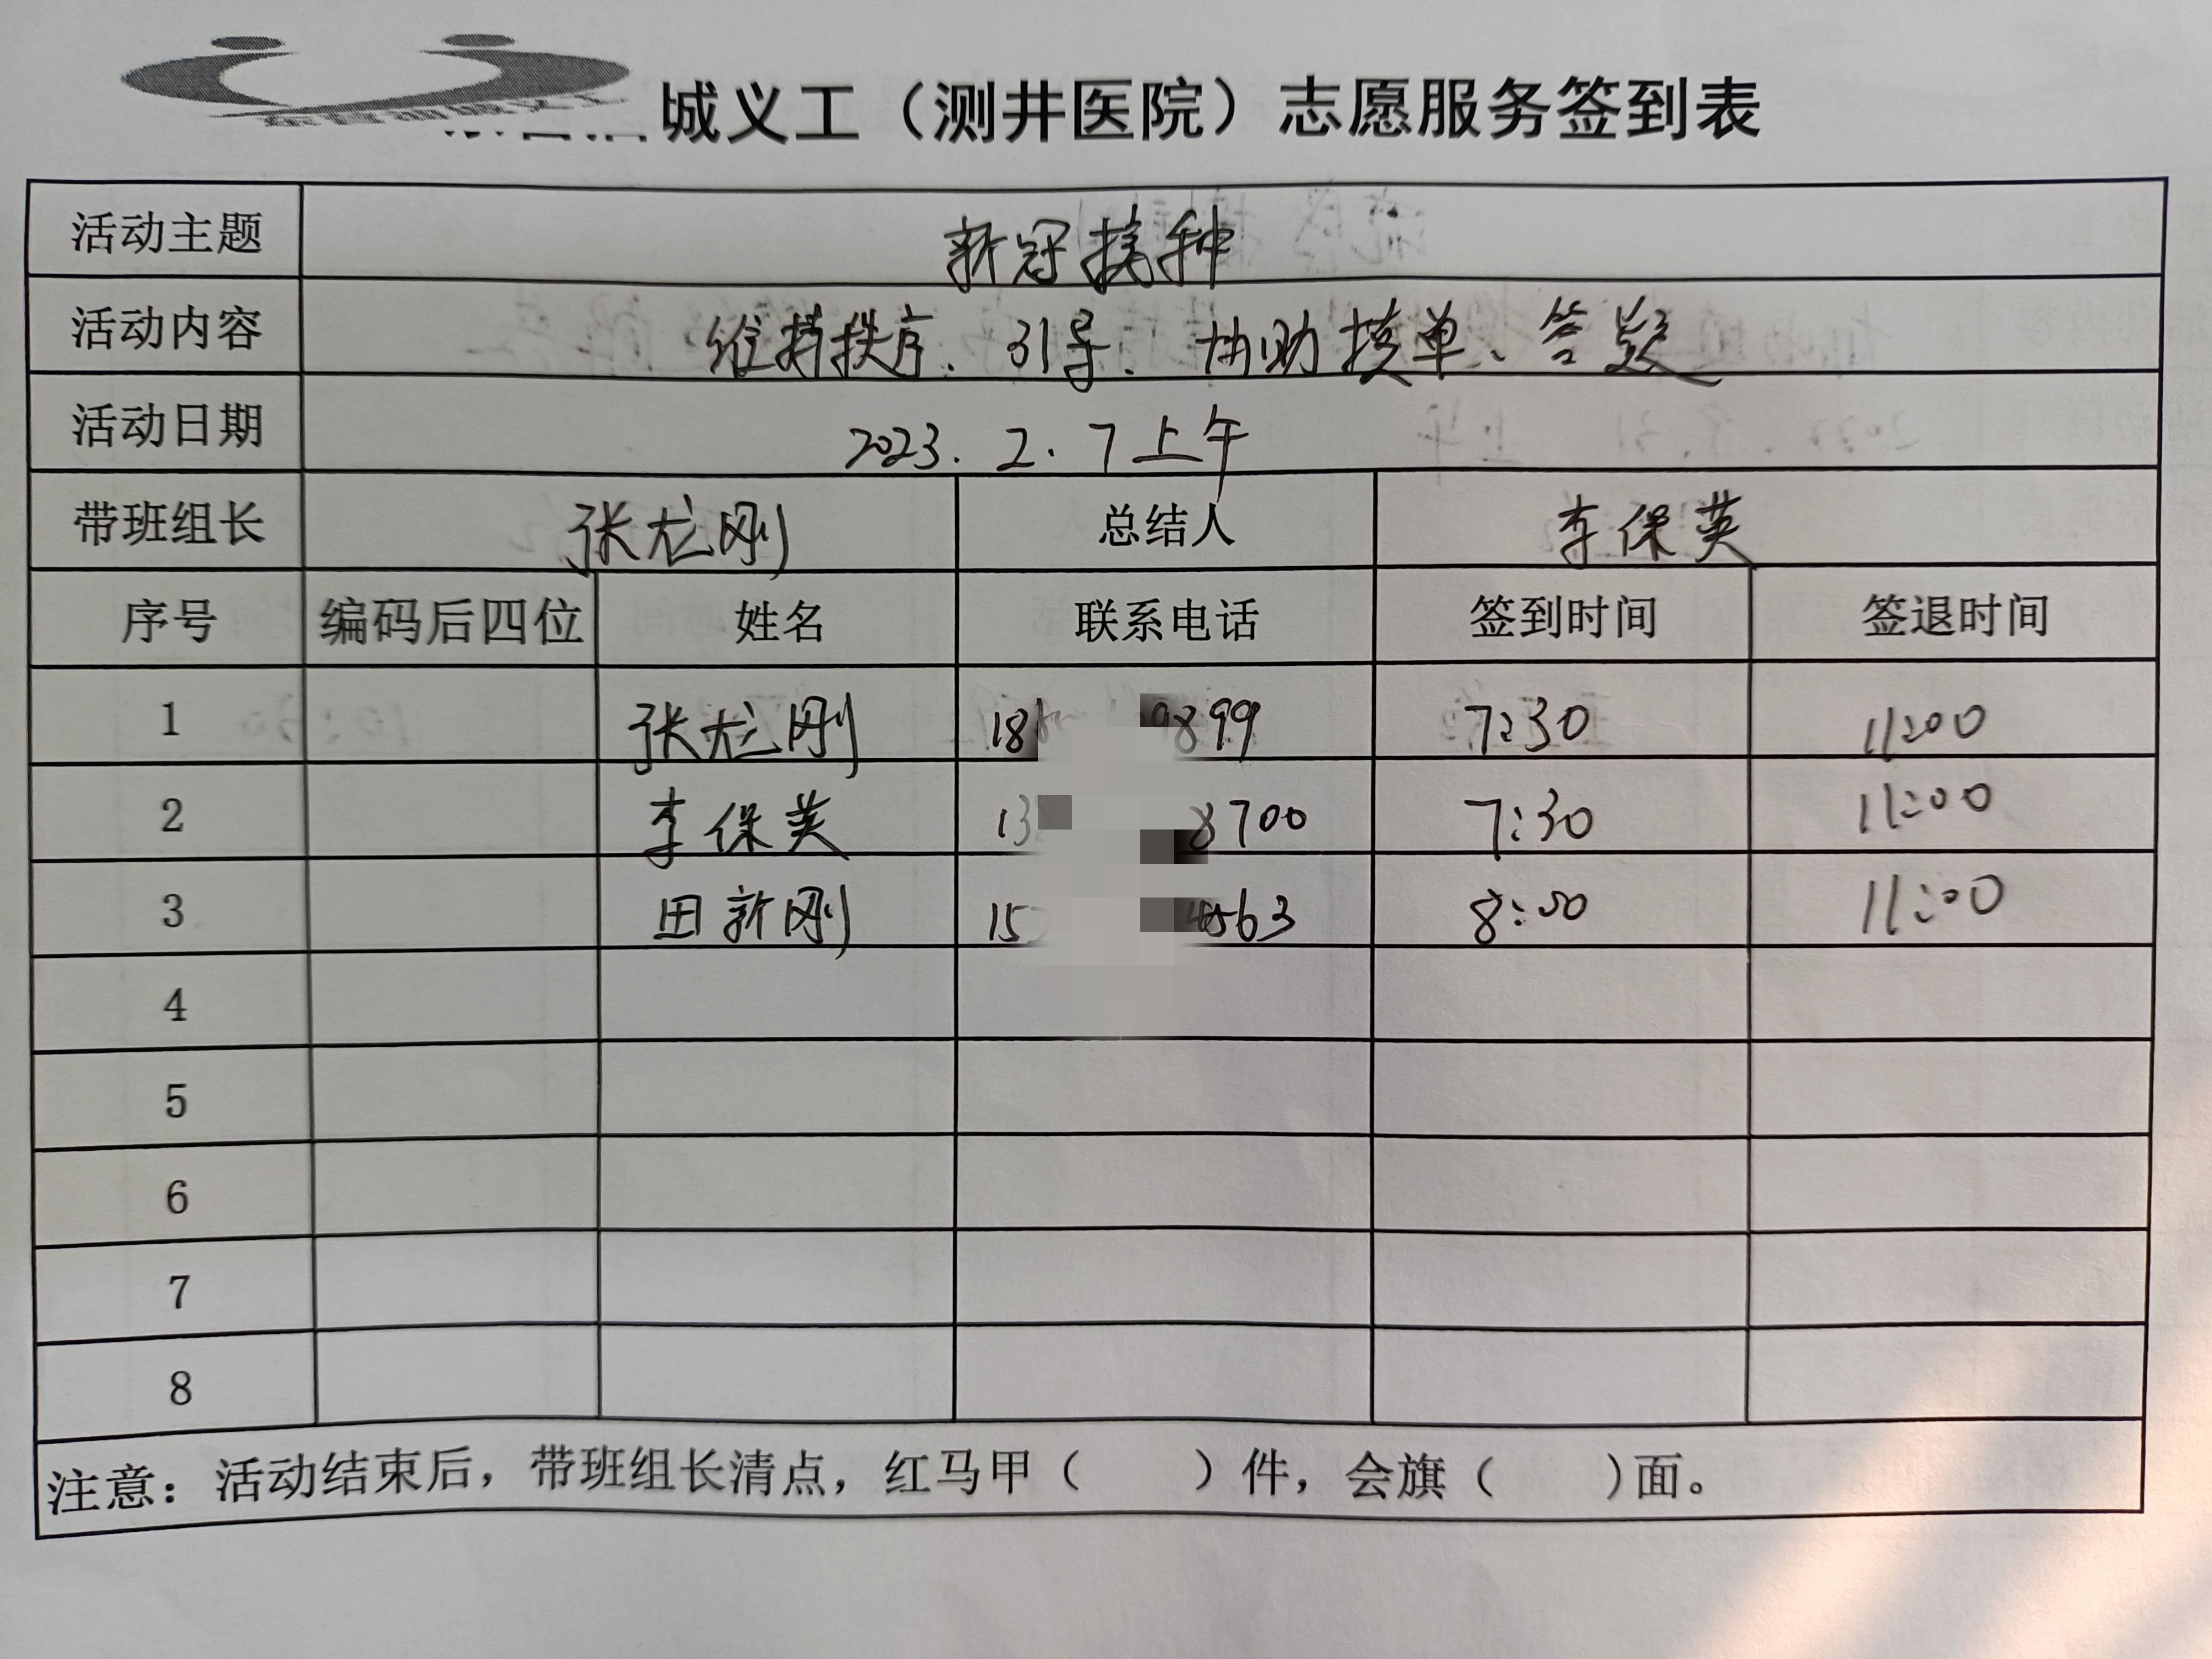 城义工（测井医院）志愿服务签到表
活动主题 新冠接种
活动内容 维持秩序、引导、协助摸单、答疑
活动日期 2023.2.7上午
带班组长 张龙刚 总结人 李保英
序号 编码后四位 姓名 联系电话 签到时间 签退时间
1 张龙刚 18 9899 7:30 11:00
2 李保英 13 8700 7:30 11:00
3 田新刚 15 4563 8:00 11:00
4
5
6
7
8
注意：活动结束后，带班组长清点，红马甲（ ）件，会旗（ ）面。